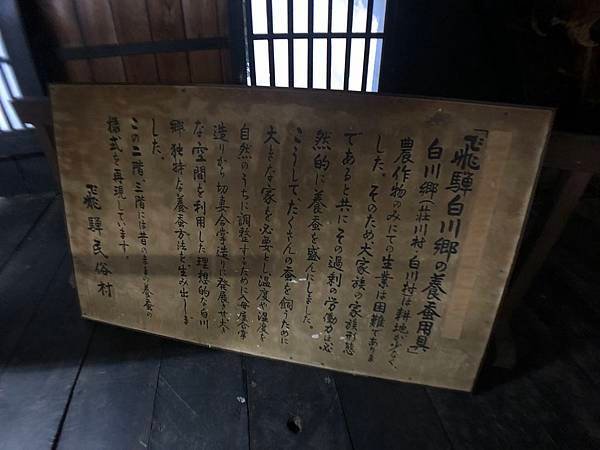 「飛騨白川郷の養蚕用具」
白川郷（荘川村、白川村）は耕地が少なく、
農作物のみにての生業は困難でありま
した。そのため大家族の家族形態
であると共に その過剰の労働力は必
然的に養蚕を盛んにしました。
こうして、たくさんの蚕を飼うために
大きな家を必要とし温度や湿度を
自然のうちに調整するために入母屋合掌
造りから切妻合掌造りに発展させ大き
な空間を利用した理想的な白川
郷独特な養蚕方法を生み出しま
した。
この二階、三階には昔のままの養蚕の
様式を再現しています。
飛騨民俗村